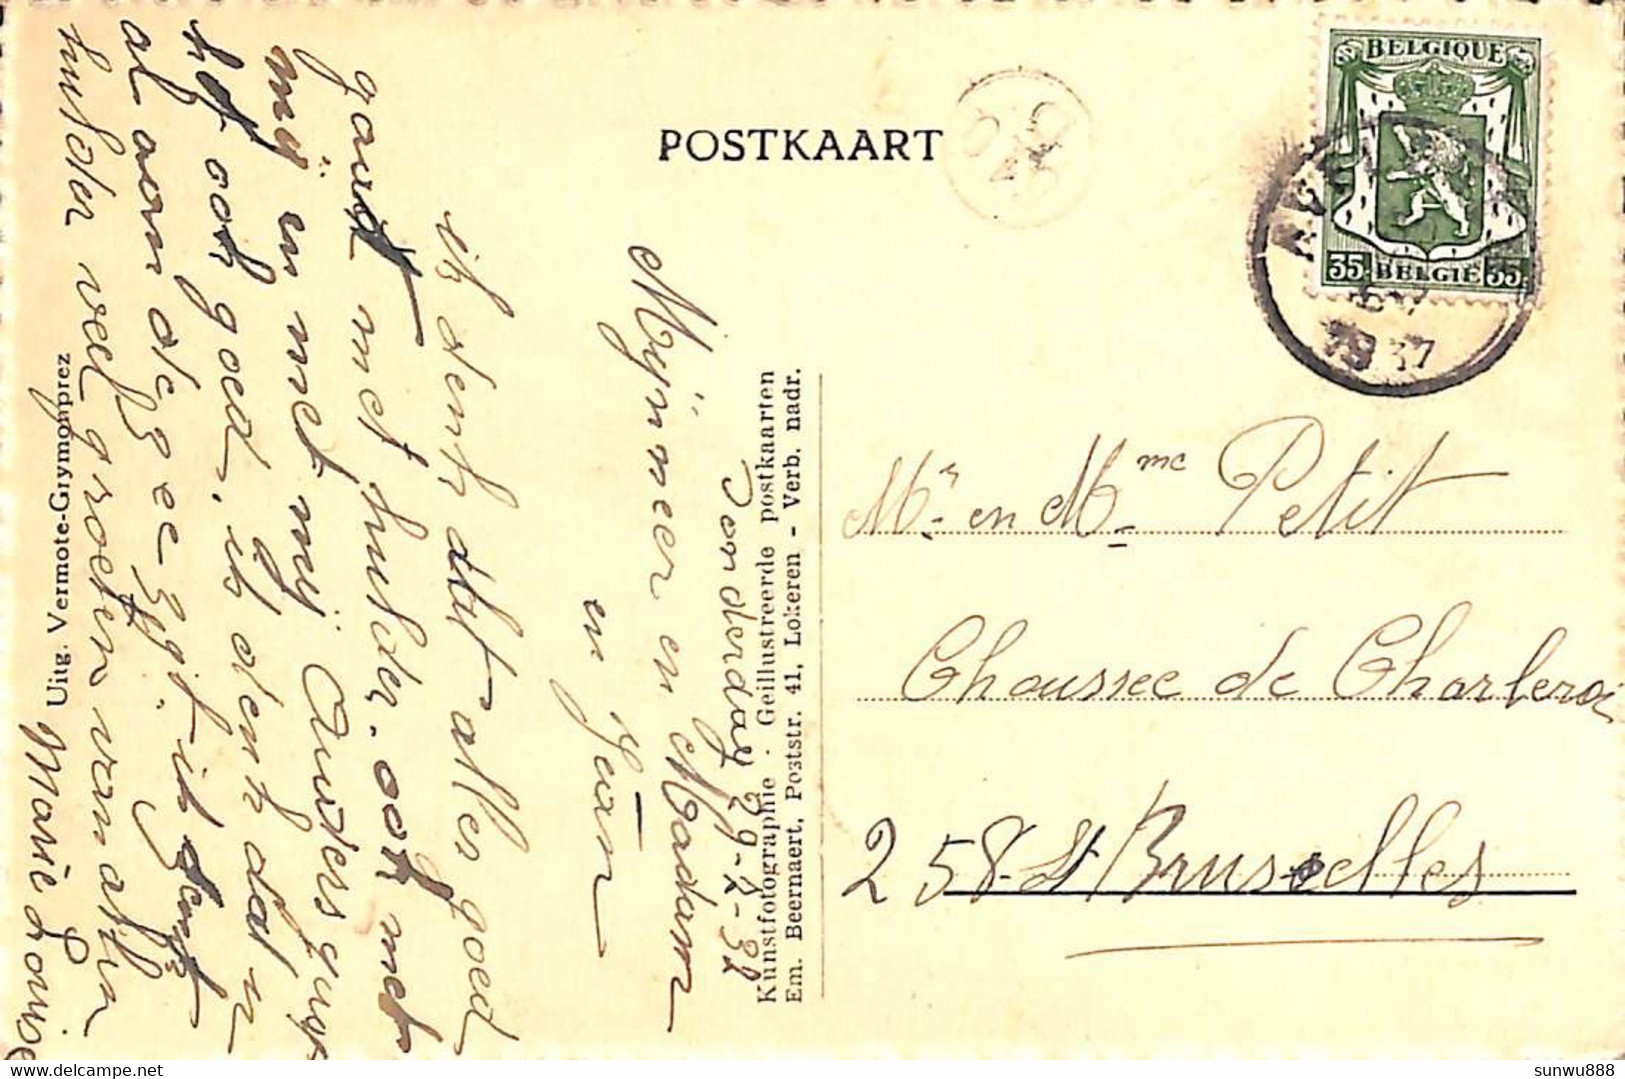 POSTKAART
BELGIQUE
35 BELGIE 35
1937
Mr. en Mme Petit
Chaussee de Charleroi
258 St Bruxelles
Donderdag
Mijnneer en Madam
en Jean
ik denk dat alles goed
gaat met hulder. ook met
mij en met mij Ouders
het ook goed, ik denk dat
al aan de zee zijt. ik
hulder veel groeten van allen
Marie Louise
Uitg. Vermote-Grymonprez
Kunstfotographie · Geïllustreerde postkaarten
Em. Beernaert, Poststr. 41, Lokeren - Verb. nadr.
sunwu888